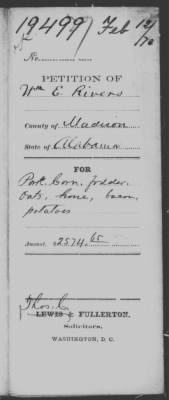 19499 Feb 12/76
No.
PETITION OF
Wm E. Rivers
County of Madison
State of Alabama
FOR
Pork, Corn, fodder,
Oats, horse, bacon,
potatoes
Amount, $2574.65
Thos. C.
LEWIS & FULLERTON,
Solicitors,
WASHINGTON, D. C.